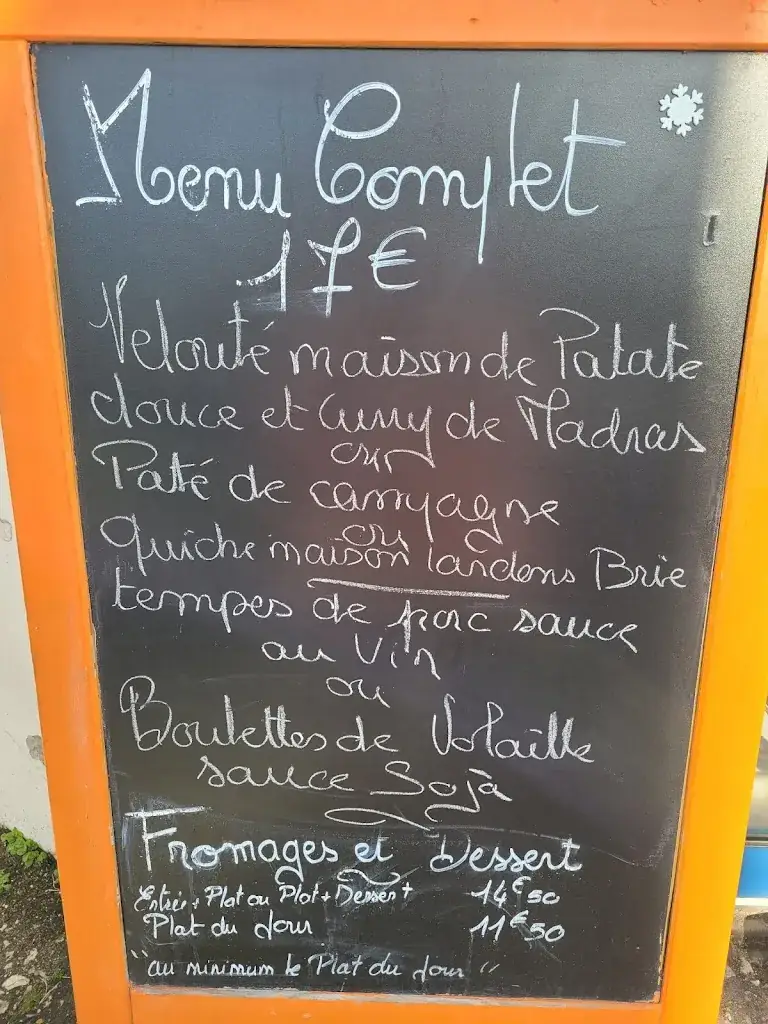 Menu Complet
17€
Velouté maison de Patate
douce et Curry de Madras
ou
Paté de campagne
ou
Quiche maison lardons Brie
tempes de porc sauce
au Vin
ou
Boulettes de Volaille
sauce Soja
Fromages et Dessert
Entrée + Plat ou Plat + Dessert 14€50
Plat du Jour 11€50
"au minimum le Plat du Jour"